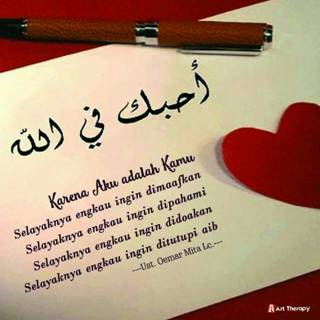 أحبك في الله
Karena Aku adalah Kamu
Selayaknya engkau ingin dimaafkan
Selayaknya engkau ingin dipahami
Selayaknya engkau ingin didoakan
Selayaknya engkau ingin ditutupi aib
---Ust. Oemar Mita Lc.---
Art Therapy